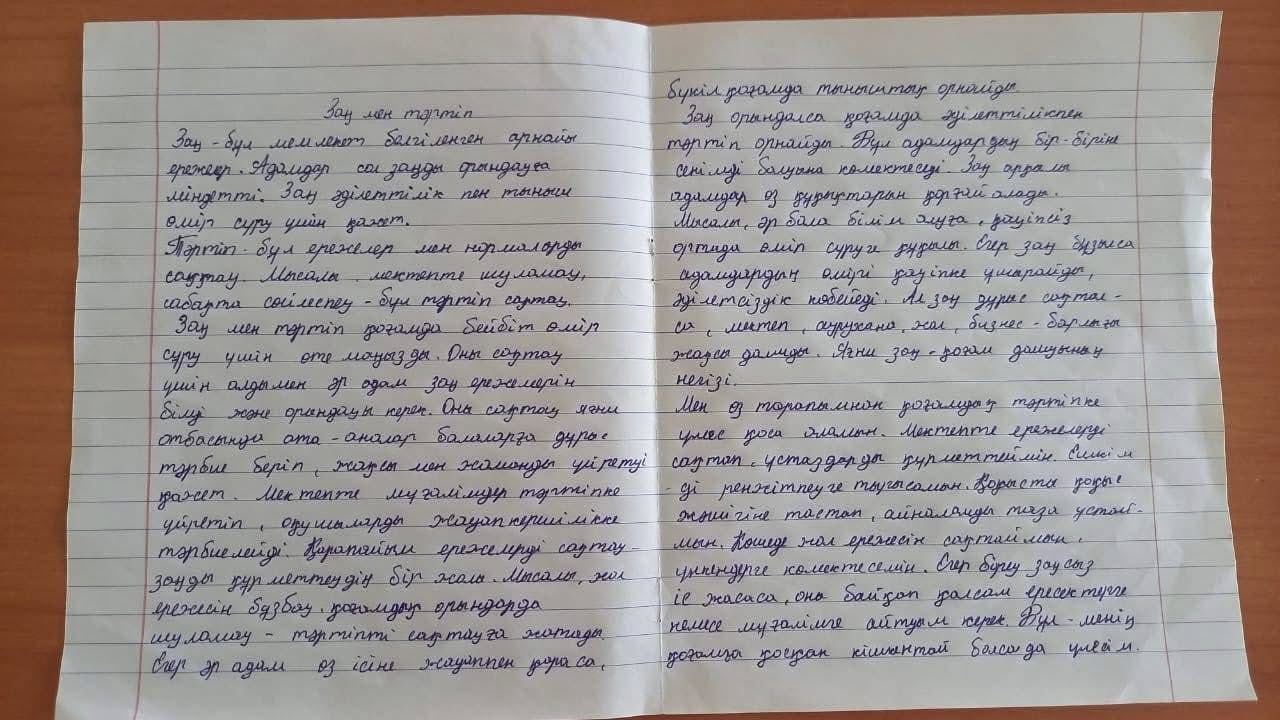 Заң мен тәртіп
Заң - бұл мемлекет белгіленген арнайы
ережер. Адамдар сол заңды орындауға
міндетті. Заң әділеттілік пен тыныш
өмір сүру үшін қажет.
Тәртіп - бұл ережелер мен нормаларды
сақтау. Мысалы мектепте шуламау,
сабақта сөйлеспеу - бұл тәртіп сақтау.
Заң мен тәртіп қоғамда бейбіт өмір
сүру үшін өте маңызды. Оны сақтау
үшін алдымен әр адам заң ережелерін
білуі және орындауы керек. Оны сақтау яғни
отбасында ата - аналар балаларға дұрыс
тәрбие беріп, жақсы мен жаманды үйретуі
қажет. Мектепте мұғалімдер тәртіпке
үйретіп, оқушыларды жауапкершілікке
тәрбиелейді. Қарапайым ережелерді сақтау -
заңды құрметтеудің бір жолы. Мысалы, жол
ережесін бұзбау, қоғамдық орындарда
шуламау - тәртіпті сақтауға жатады.
Егер әр адам өз ісіне жауаппен қараса,
бүкіл қоғамда тыныштық орнайды.
Заң орындалса қоғамда әділеттілікпен
тәртіп орнайды. Бұл адамдардың бір-біріне
сенімді болуына көмектеседі. Заң арқылы
адамдар өз құқықтарын қорғай алады.
Мысалы, әр бала білім алуға, қауіпсіз
ортада өмір сүруге құқылы. Егер заң бұзылса
адамдардың өмірі қауіпке ұшырайды,
әділетсіздік көбейеді. Ал заң дұрыс сақтал-
са, мектеп, аурухана, жол, бизнес - барлығы
жақсы дамиды. Яғни заң - қоғам дамуының
негізі.
Мен өз тарапымнан қоғамдық тәртіпке
үлес қоса аламын. Мектепте ережелерді
сақтап, ұстаздарды құрметтеймін. Ешкім
-ді ренжітпеуге тырысамын. Қоқысты қоқыс
жәшігіне тастап, айналамды таза ұстай-
мын. Көшеде жол ережесін сақтаймын,
үлкендерге көмектесемін. Егер біреу заңсыз
іс жасаса, оны байқап қалсам ересектерге
немесе мұғалімге айтуым керек. Бұл - менің
қоғамға қосқан кішкентай болсада үлесім.